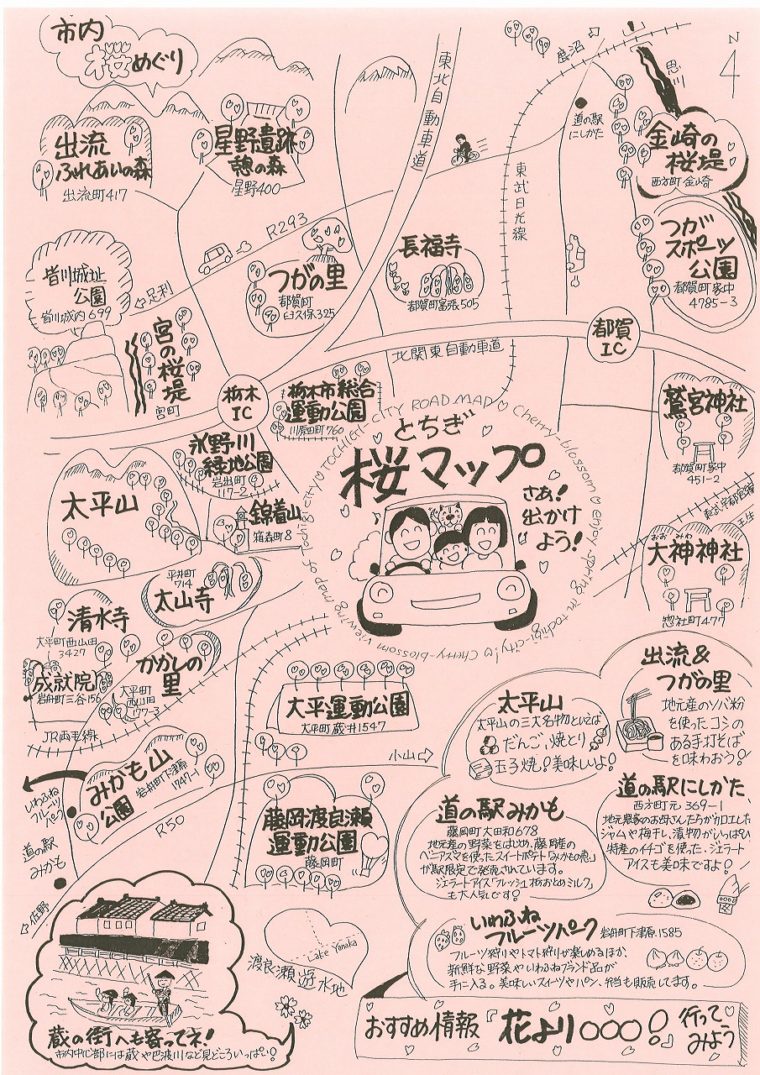 市内
桜めぐり
N
鹿沼
思川
道の駅
にしかた
東北自動車道
東武日光線
出流
ふれあいの森
出流町417
星野遺跡
憩の森
星野400
金崎の
桜堤
西方町金崎
R293
つがの里
都賀町
臼久保325
長福寺
都賀町富張505
つが
スポーツ
公園
都賀町家中
4785-3
皆川城址
公園
皆川城内699
足利
宮の桜堤
宮町
都賀
IC
北関東自動車道
栃木
IC
栃木市総合
運動公園
川原田町760
鷲宮神社
都賀町家中
451-2
永野川
緑地公園
岩出町
117-2
TOCHIGI-CITY ROAD MAP ♡ Cherry-blossom ♡ enjoy spring in tochigi-city! ♡ Cherry-blossom viewing map of Tochigi-city ♡
とちぎ
桜マップ
さあ!
出かけ
よう!
太平山
錦着山
箱森町8
東武宇都宮線
壬生
おおみわ
大神神社
惣社町477
平井町
714
太山寺
清水寺
大平町西山田
3427
かかしの
里
大平町
西山田
177-3
成就院
岩舟町三谷156
JR両毛線
大平運動公園
大平町蔵井1547
小山
太平山
太平山の三大名物といえば
だんご、焼とり
玉子焼!美味しいよ!
出流&
つがの里
地元産のソバ粉
を使ったコシの
ある手打そば
を味わおう!
みかも山
公園
岩舟町下津原
1747-1
いわふね
フルーツパーク
R50
道の駅
みかも
佐野
藤岡渡良瀬
運動公園
藤岡町
道の駅みかも
藤岡町大田和678
地元産の野菜をはじめ、藤岡産の
ベニアズマを使ったスイートポテト「みかもの恋」
が駅限定で発売されています。
ジェラートアイス「フレッシュ桃おとめミルク」
も大人気です!
道の駅にしかた
西方町元369-1
地元農家のお母さんたちが加工した
ジャムや梅干し、漬物がいっぱい
特産のイチゴを使った、ジェラート
アイスも美味ですよ!
いわふね
フルーツパーク
岩舟町下津原1585
フルーツ狩りやトマト狩りが楽しめるほか、
新鮮な野菜やいわふねブランド品が
手に入る。美味しいスイーツやパン、弁当も販売してます。
Lake Yanaka
渡良瀬遊水地
蔵の街へも寄ってネ!
市内中心部には蔵や巴波川など見どころいっぱい!
おすすめ情報
『花より○○○!』
行って
みよう